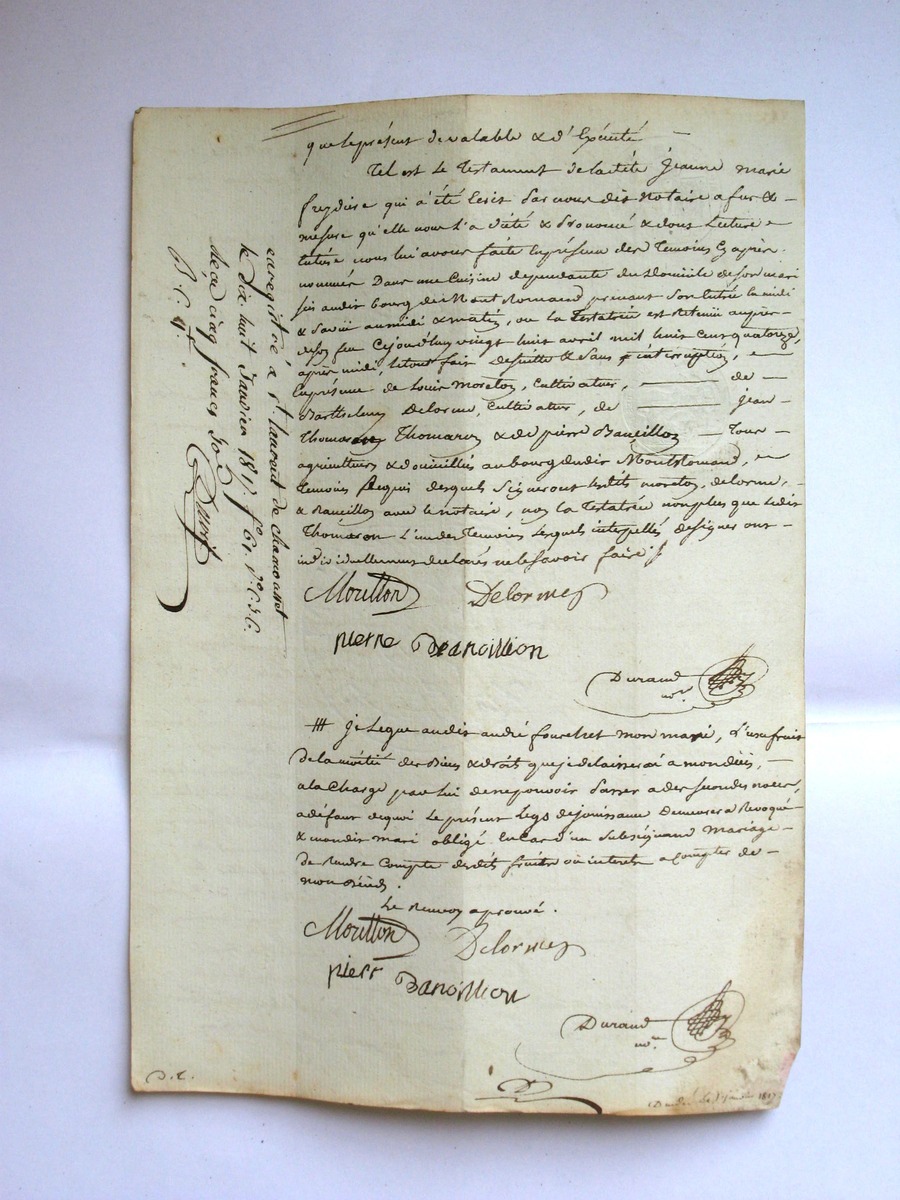 que le présent de valable & d'Exécuté
Tel est Le Testament de ladite Jeanne marie
qui a été Ecrit par nous dit Notaire a fur &
mesure qu'elle nous l'a dicté & prononcé & dont Lecture
nous lui avons faite En présence des Temoins Cy après
nommés Dans une Cuisine dependante du Domicile de son mari
audit bourg de Mont Romand prenant Son Entrée
& au midi & matin, ou la Testatrice est Retenue auprès
de son feu Cejourdhuy vingt huit avril mil huit Cent quatorze,
après midi, Letout fait desuitte & sans interruption,
En présence de Louis Moreton, Cultivateur, de
Barthelemy Delorme, Cultivateur, de Jean
Thomaron & de pierre Tous
agriculteurs & domiciliés au bourg dudit Montromand,
Temoins Requis desquels Signeront lesdits moreton, delorme,
& avec le notaire, non la Testatrice nonplus que ledit
Thomaron L'un des Temoins Lesquels interpellés designer ont
individuellement déclarés ne le Savoir faire
Moretton Delorme
pierre
Durand
nore
Je Legue audit andré mon mari, L'usufruit
de la moitié des Biens & droits que je delaisserai a mon décès,
a la Charge par Lui de ne pouvoir Passer a des secondes noces,
a défaut de quoi Le présent Legs de jouissance Demeurera Revoqué
& mondit mari obligé En Cas d'un Subséquand Mariage
de Rendre Compte desdits fruits ou interets a Compter de
mon Décès.
Le Renvoy aprouvé.
Moretton Delorme
pierr
Durand
nore
enregistré à St. Laurent de chamousset
le dix huit Janvier 1817. fo 61 Vo C. 3. &.
cinq francs